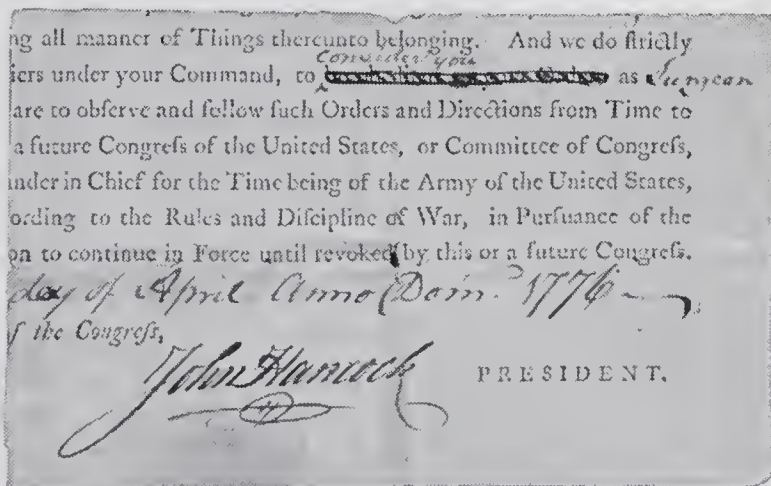 ng all manner of Things thereunto belonging. And we do ſtrictly
consider you
iers under your Command, to as Surgeon
are to obſerve and follow ſuch Orders and Directions from Time to
a future Congreſs of the United States, or Committee of Congreſs,
ander in Chief for the Time being of the Army of the United States,
ording to the Rules and Diſcipline of War, in Purſuance of the
on to continue in Force until revoked by this or a future Congreſs.
day of April Anno Dom. 1776
f the Congreſs,
John Hancock PRESIDENT.